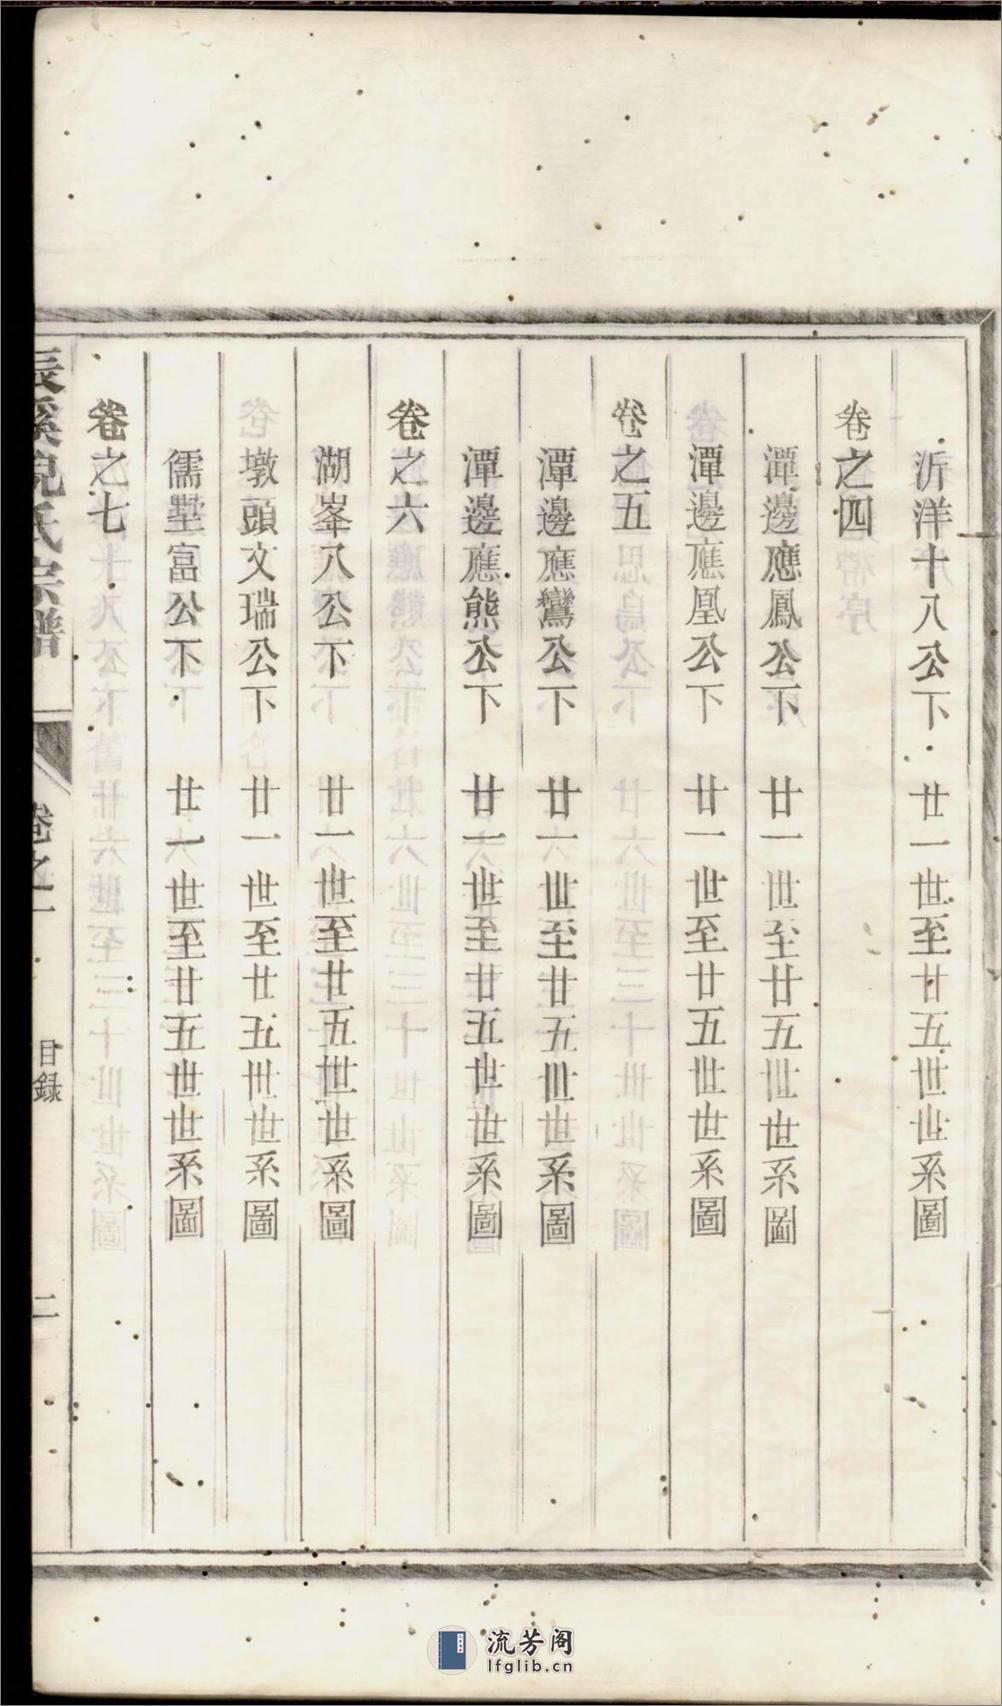 沂洋十八公下 廿一世至廿五世世系圖
卷之四
潭邊應鳳公下 廿一世至廿五世世系圖
潭邊應凰公下 廿一世至廿五世世系圖
卷之五
潭邊應鸞公下 廿一世至廿五世世系圖
潭邊應熊公下 廿一世至廿五世世系圖
卷之六
湖峯八公下 廿一世至廿五世世系圖
墩頭文瑞公下 廿一世至廿五世世系圖
儒墅富公下 廿一世至廿五世世系圖
卷之七
氏宗譜 卷之一 目錄 二
流芳阁
lfglib.cn